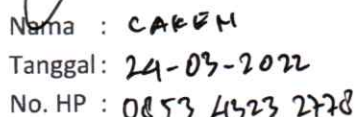 Nama : CAKEM
Tanggal : 24-03-2022
No. HP : 0853 4323 2778